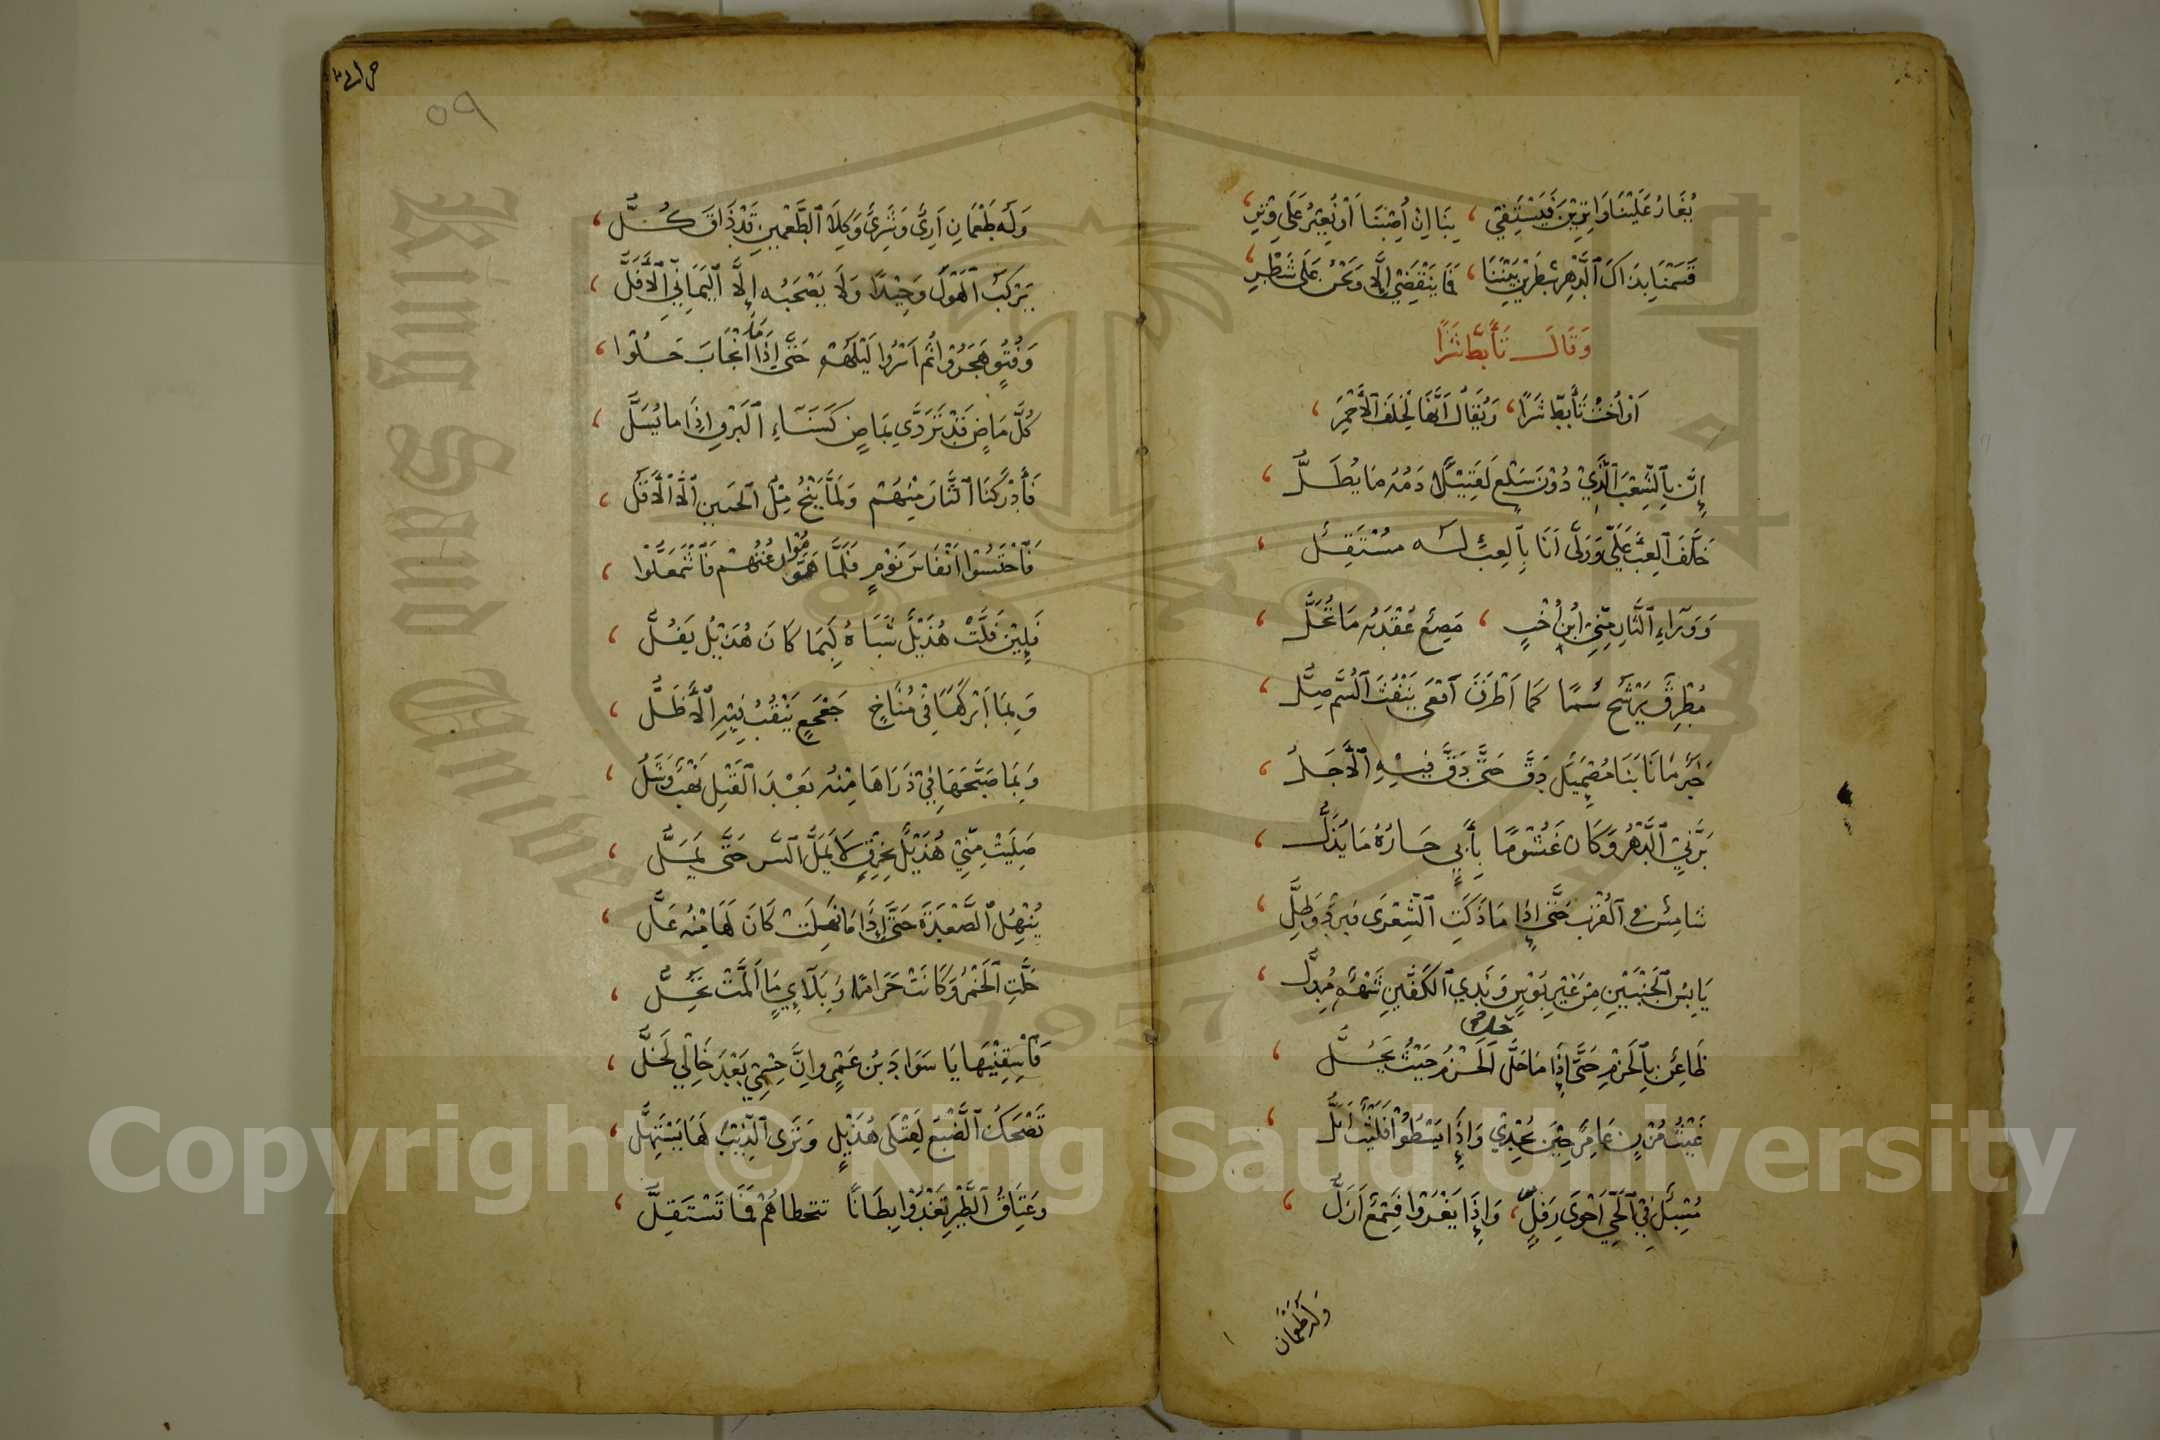 يُغَارُ عَلَيْنَا وَاتِرِيْنَ فَيَسْتَفِيْ ، بِنَا اِنْ اُصِبْنَا اَوْ نُغِيْرُ عَلَى وِتْرِ
قَسَمْنَا بِذَاكَ ٱلدَّهْرَ شَطْرَيْنِ بَيْنَنَا ، فَمَا يَنْقَضِيْ اِلَّا وَنَحْنُ عَلَى شَطْرِ
وَقَالَ تَأَبَّطَ شَرًّا
اَوْ اُخْتُ تَأَبَّطَ شَرًّا ، وَيُقَالُ اَنَّهَا لِخَلَفِ ٱلْأَحْمَرِ
إِنَّ بِٱلشِّعْبِ ٱلَّذِيْ دُوْنَ سَلْعٍ لَقَتِيْلًا دَمُهُ مَا يُطَلُّ
خَلَّفَ ٱلعِبْءَ عَلَيَّ وَوَلَّى اَنَا بِٱلعِبْءِ لَهُ مُسْتَقِلُّ
وَوَرَاءِ ٱلثَّارِ مِنِّيْ اِبْنُ اُخْتٍ ، مَصِعٌ عُقْدَتُهُ مَا تُحَلُّ
مُطْرِقٌ يَرْشَحُ سُمًّا كَمَا اَطْرَقَ اَفْعَى يَنْفُثُ ٱلسُّمَّ صِلُّ
خَبَرٌ مَا نَابَنَا مُصْمَئِلٌّ جَلَّ حَتَّى دَقَّ فِيْهِ ٱلْأَجَلُّ
بَزَّنِيْ ٱلدَّهْرُ وَكَانَ غَشُوْمًا بِأَبِيٍّ جَارُهُ مَا يُذَلُّ
شَامِسٌ فِي ٱلْقُرِّ حَتَّى اِذَا مَا ذَكَتِ ٱلشِّعْرَى فَبَرْدٌ وَظِلُّ
يَابِسُ ٱلْجَنْبَيْنِ مِنْ غَيْرِ بُؤْسٍ وَنَدِي ٱلكَفَّيْنِ شَهْمٌ مُدِلُّ
ظَاعِنٌ بِٱلْحَزْمِ حَتَّى اِذَا مَا حَلَّ حَلَّ ٱلْحَزْمُ حَيْثُ يَحُلُّ
غَيْثُ مُزْنٍ غَامِرٌ حِيْنَ يُجْدِيْ وَاِذَا يَسْطُوْ فَلَيْثٌ اَبَلُّ
مُسْبِلٌ فِيْ ٱلْحَيِّ اَحْوَى رِفَلٌّ ، وَاِذَا يَغْزُوْا فَسِمْعٌ اَزَلُّ
وله طعمان
٥٩
وَلَهُ طَعْمَانِ اَرْيٌ وَشَرْيٌ وَكِلَا ٱلطَّعْمَيْنِ قَدْ ذَاقَ كُلُّ
يَرْكَبُ ٱلْهَوْلَ وَحِيْدًا وَلَا يَصْحَبُهُ اِلَّا ٱلْيَمَانِي ٱلْأَفَلُّ
وَفُتُوٍّ هَجَّرُوْا ثُمَّ اَسْرُوا لَيْلَهُمْ حَتَّى اِذَا مَا ٱنْجَابَ حَلُوْا
كُلُّ مَاضٍ قَدْ تَرَدَّى بِمَاضٍ كَسَنَاءِ ٱلبَرْقِ اِذَا مَا يُسَلُّ
فَأَدْرَكْنَا ٱلثَّارَ مِنْهُمْ وَلَمَّا يَنْجُ مِلْ ٱلْحَيَّيْنِ اِلَّا ٱلْأَقَلُّ
فَٱحْتَسَوْا اَنْفَاسَ نَوْمٍ فَلَمَّا هَوَّمُوْا رُعْتُهُمْ فَٱشْمَعَلُّوْا
فَلَئِنْ فَلَّتْ هُذَيْلٌ شَبَاهُ لَبِمَا كَانَ هُذَيْلًا يَفُلُّ
وَبِمَا اَبْرَكَهَا فِيْ مُنَاخٍ جَعْجَعٍ يَنْقُبُ فِيْهِ ٱلْأَظَلُّ
وَبِمَا صَبَّحَهَا فِيْ ذَرَاهَا مِنْهُ بَعْدَ ٱلْقَتْلِ نَهْبٌ وَشَلُّ
صَلِيَتْ مِنِّيْ هُذَيْلٌ بِخِرْقٍ لَا يَمَلُّ ٱلشَّرَّ حَتَّى يَمَلُّ
يُنْهِلُ ٱلصَّعْدَةَ حَتَّى اِذَا مَا نَهِلَتْ كَانَ لَهَا مِنْهُ عَلُّ
حَلَّتِ ٱلْخَمْرُ وَكَانَتْ حَرَامًا وَبِلَأْيٍ مَا اَلَمَّتْ تَحِلُّ
فَٱسْقِنِيْهَا يَا سَوَادَ بْنَ عَمْرٍو اِنَّ جِسْمِيْ بَعْدَ خَالِيْ لَخَلُّ
تَضْحَكُ ٱلضَّبْعُ لِقَتْلَى هُذَيْلٍ وَتَرَى ٱلذِّئْبَ لَهَا يَسْتَهِلُّ
وَعِتَاقُ ٱلطَّيْرِ تَغْدُوْا بِطَانًا تتخطاهُمْ فَمَا تَسْتَقِلُّ
Copyright © King Saud University
King Saud University
1957